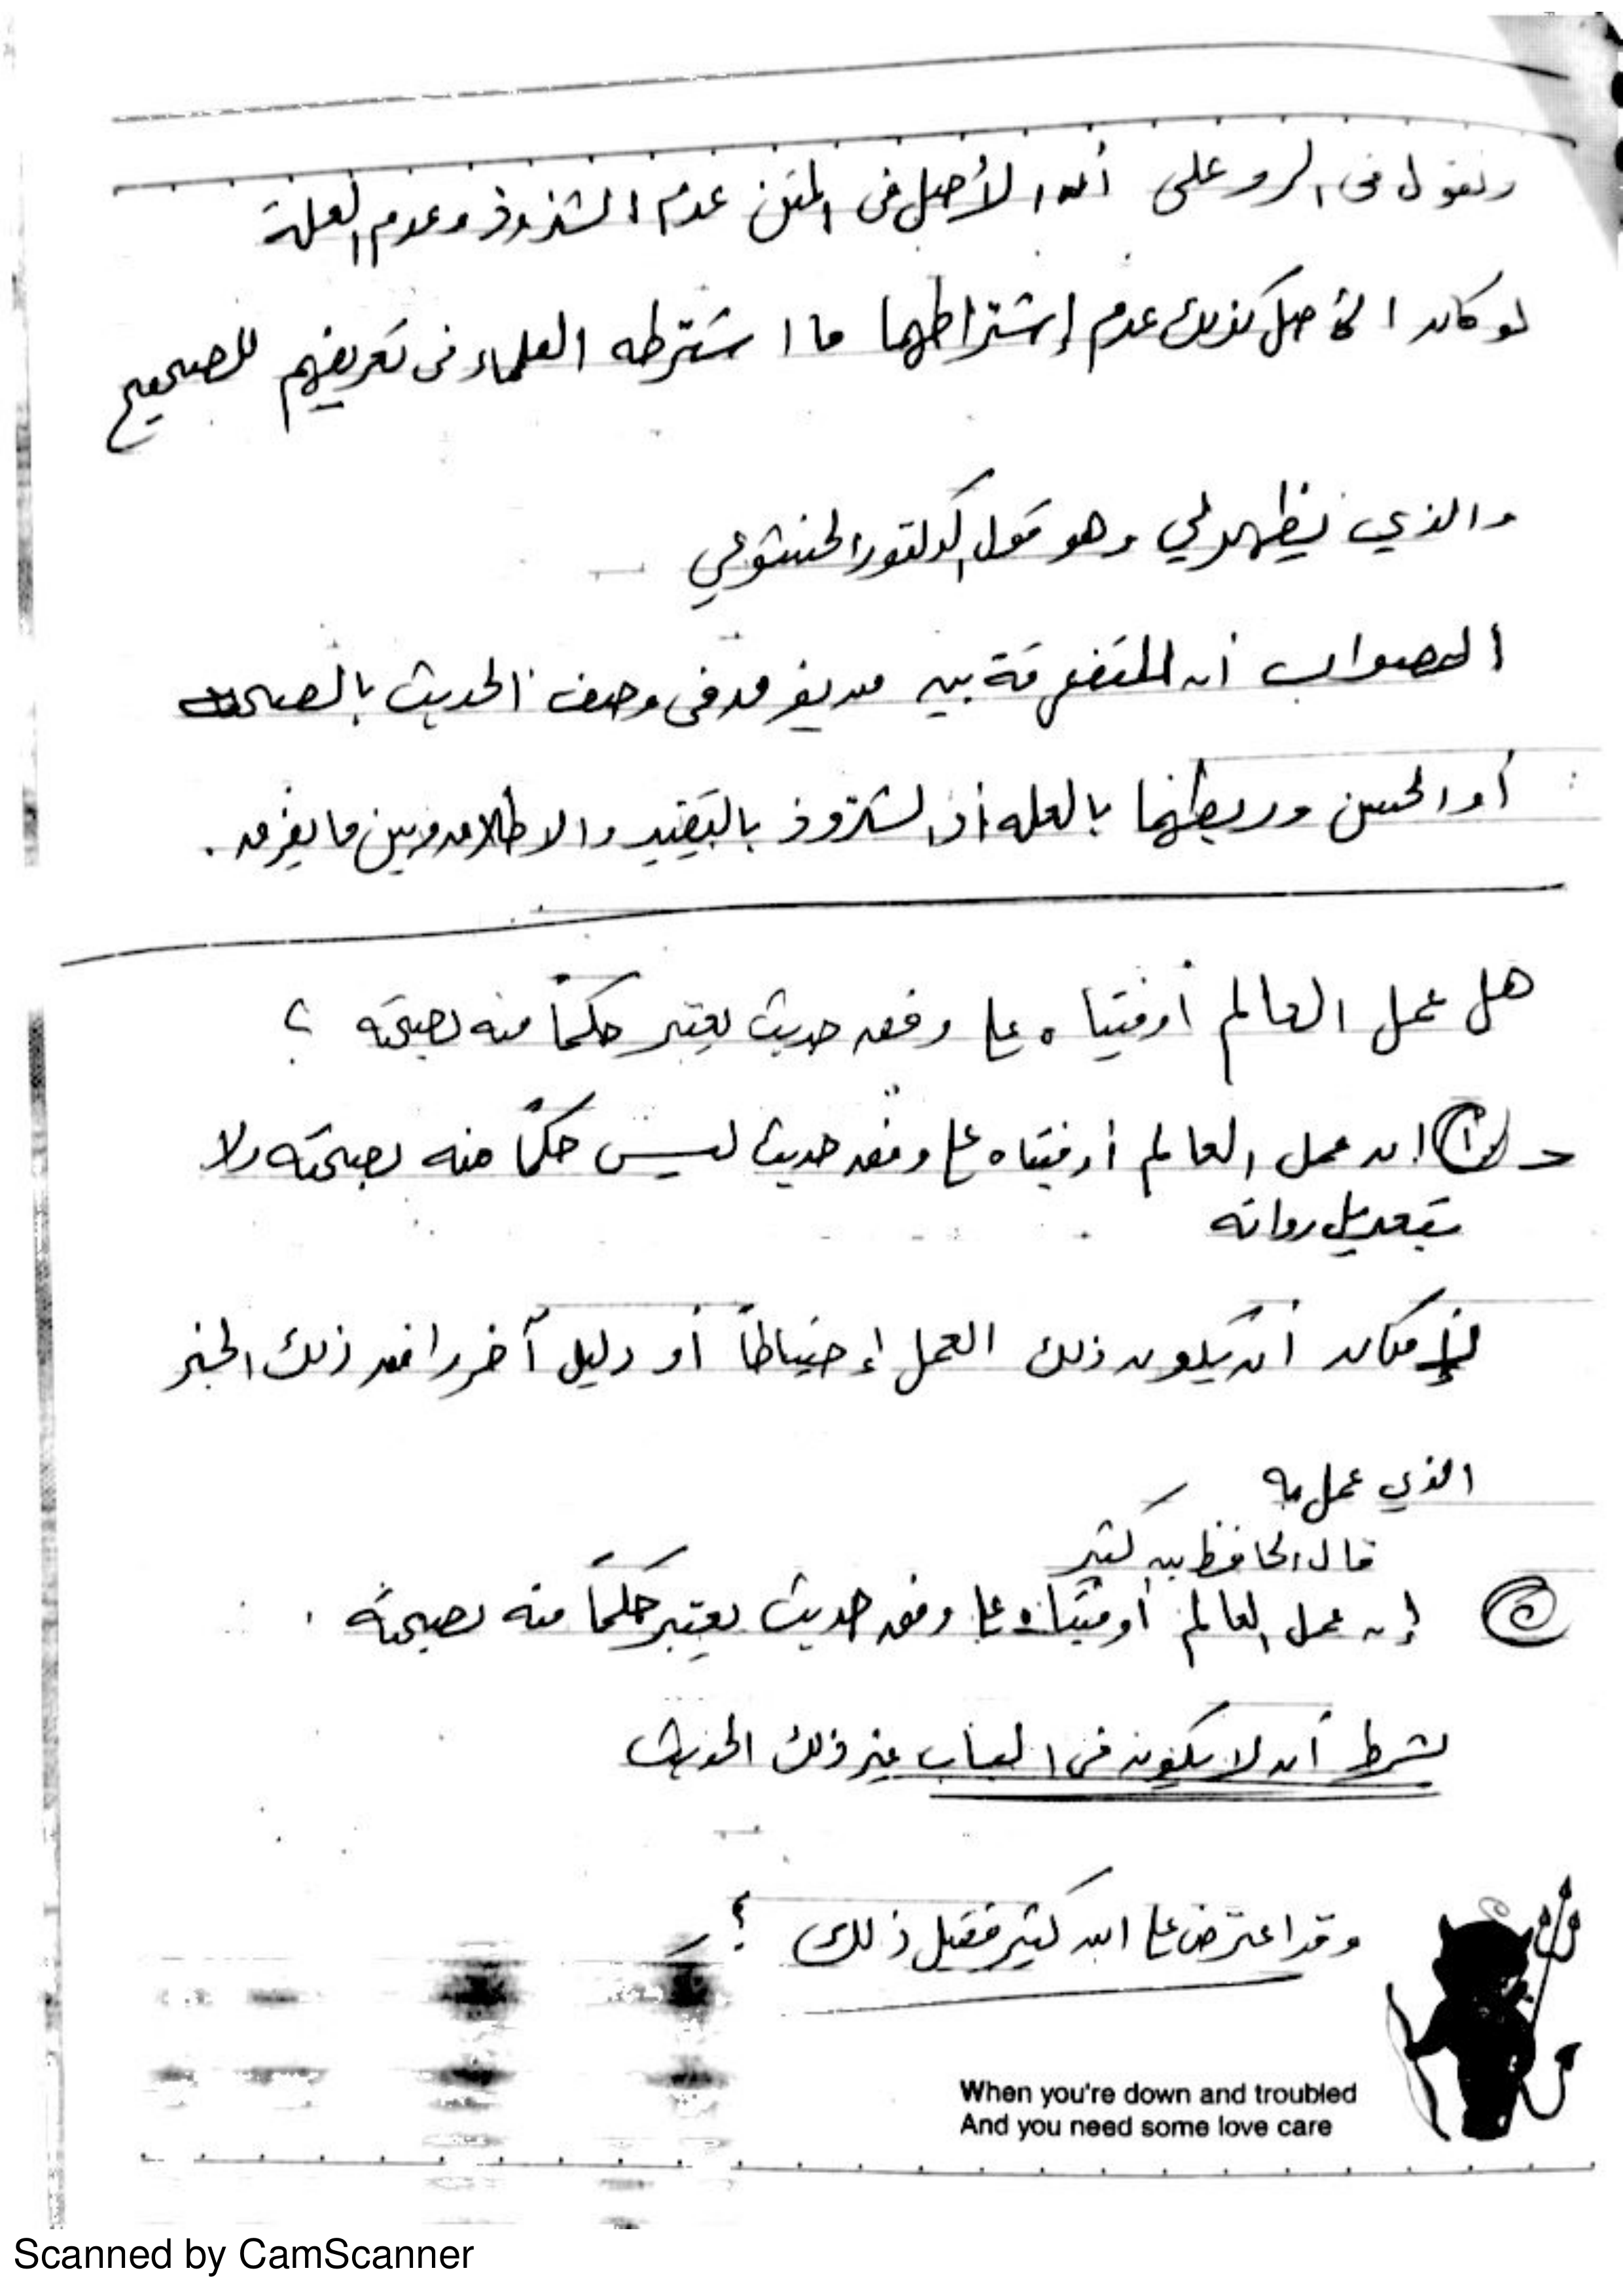 ونقول فى الرد على أن الأصل فى المتن عدم الشذوذ وعدم العلة
لو كان الأصل كذلك عدم إشتراطهما ما اشترطه العلماء فى تعريفهم للصحيح
والذي يظهر لي وهو قول الدكتور الخشوعي
الصواب أن التفرقة بين من يفرق فى وصف الحديث بالصحة
أو الحسن وربطهما بالعله أو الشذوذ بالتقييد والاطلاق وبين ما يفرق .
هل عمل العالم أو فتياه على وفق حديث يعتبر حكماً منه بصحته ؟
١ ان عمل العالم أو فتياه على وفق حديث ليس حكماً منه بصحته ولا
بتعديل رواته
لإمكان أن يكون ذلك العمل إحتياطاً أو دليل آخر وافق ذلك الخبر
الذي عمل به
قال الحافظ بن كثير
إن عمل العالم أو فتياه على وفق حديث يعتبر حكماً منه بصحته .
بشرط أن لا يكون فى الباب غير ذلك الحديث
وقد اعترض على ابن كثير فقيل ذلك ؟
When you're down and troubled
And you need some love care
Scanned by CamScanner